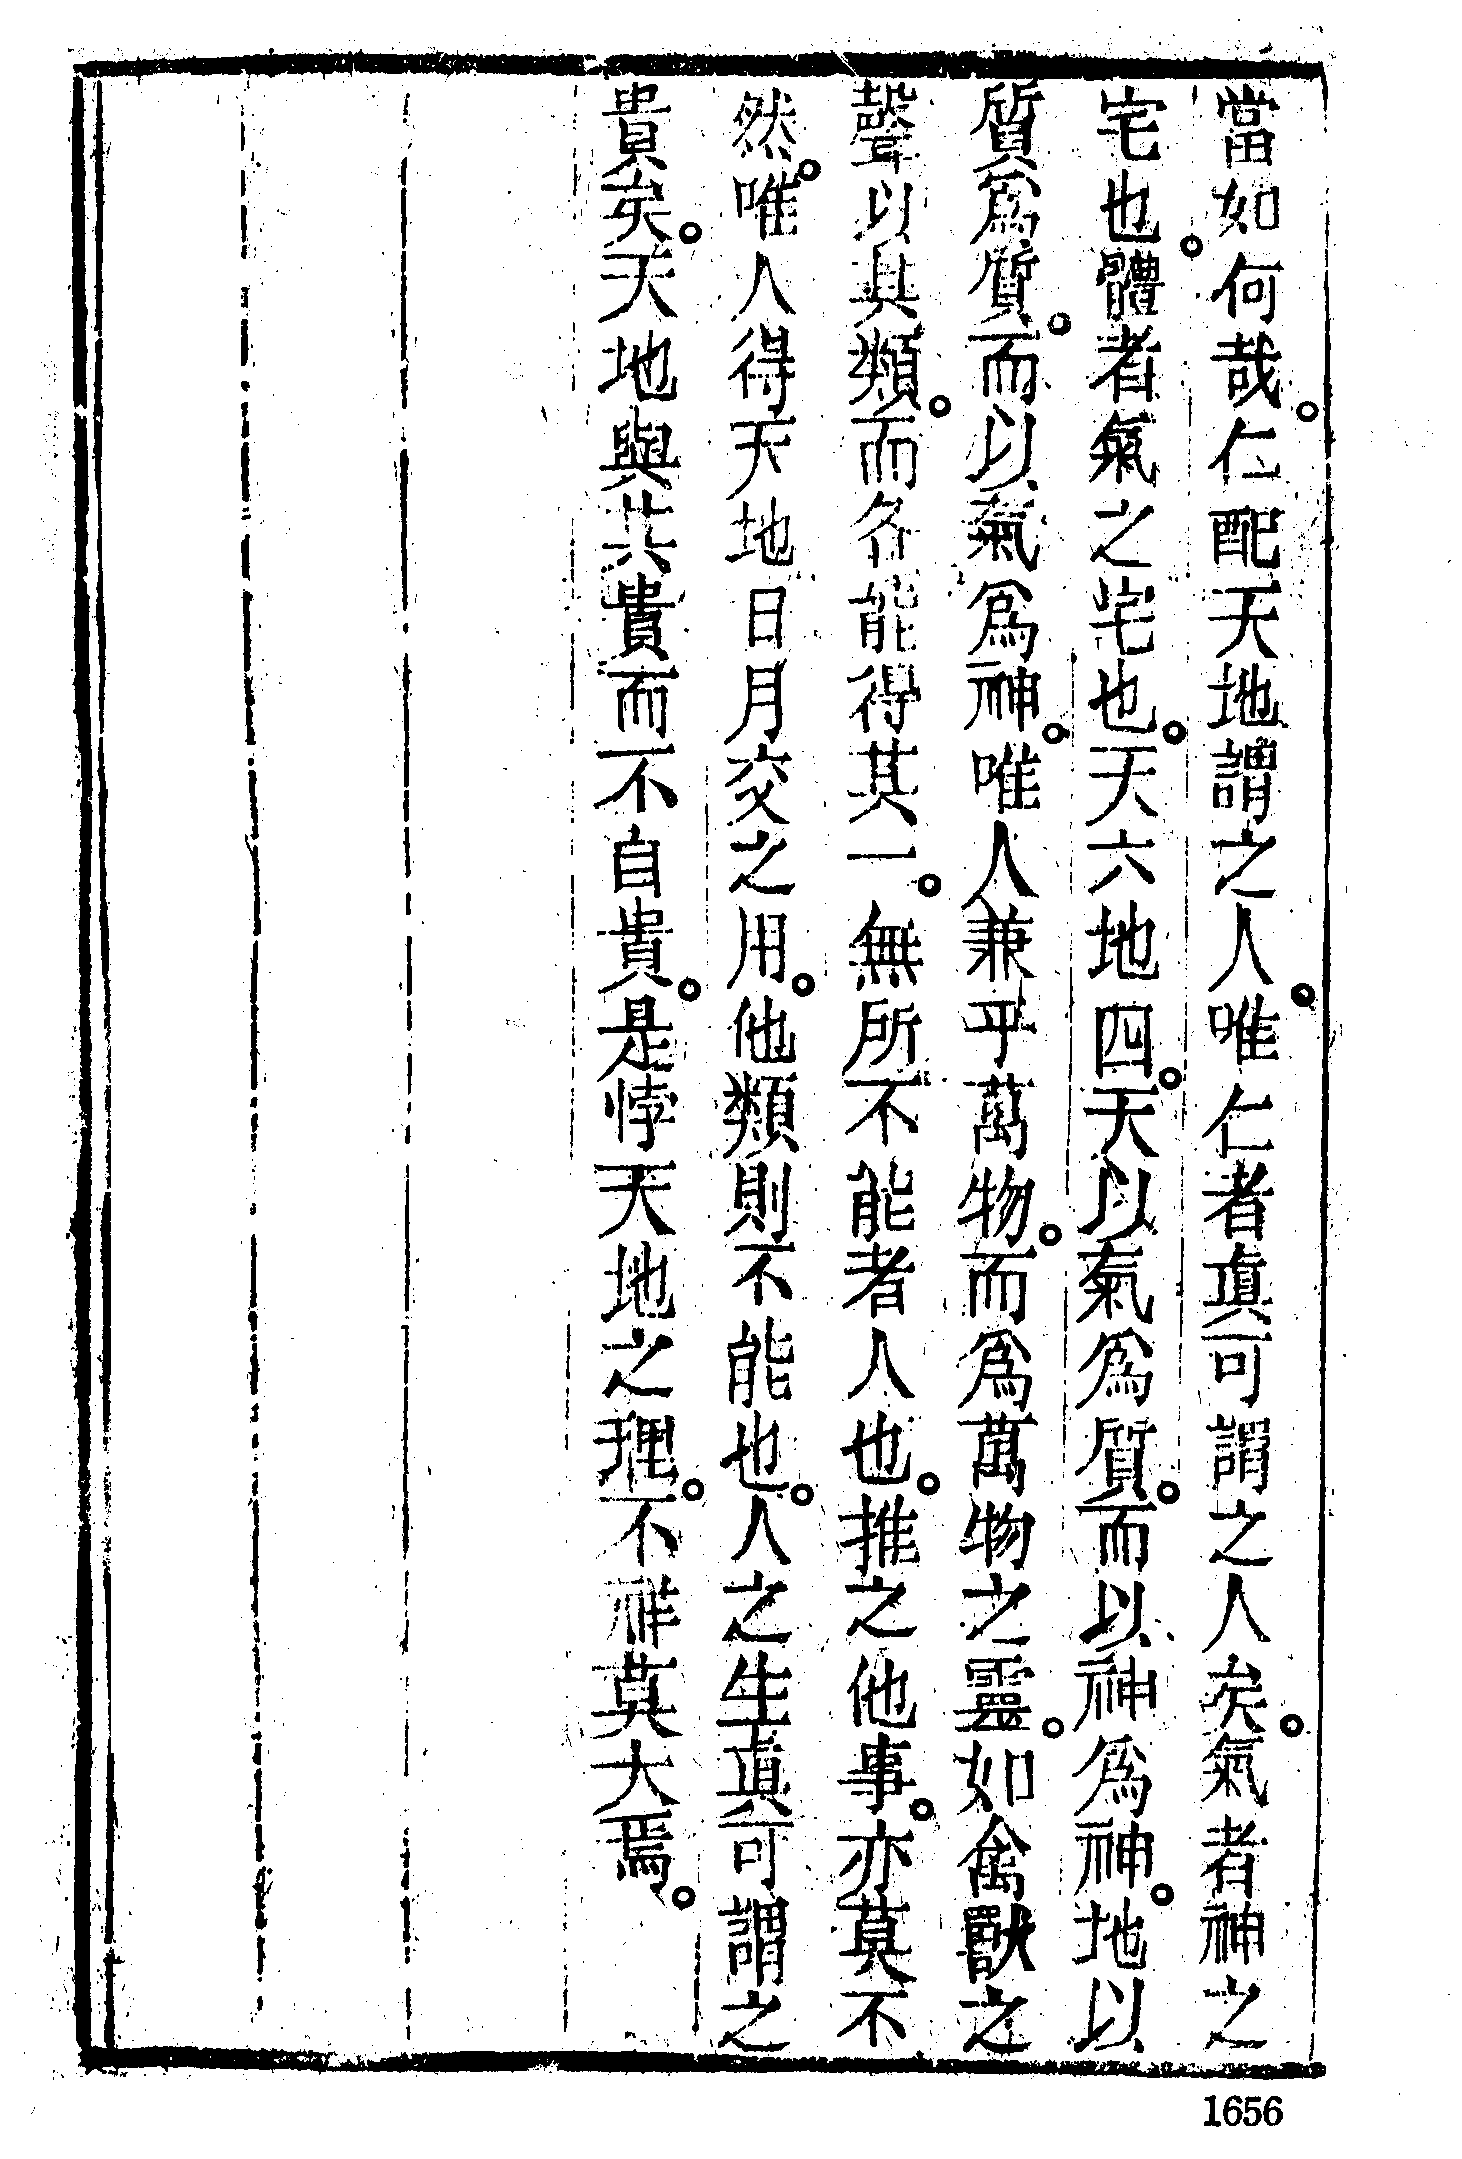 當如何哉。仁配天地謂之人。唯仁者眞可謂之人矣。氣者神之
宅也。體者氣之宅也。天六地四。天以氣爲質。而以神爲神。地以
質爲質。而以氣爲神。唯人兼乎萬物。而爲萬物之靈。如禽獸之
聲以其類。而各能得其一。無所不能者人也。推之他事。亦莫不
然。唯人得天地日月交之用。他類則不能也。人之生眞可謂之
貴矣。天地與其貴而不自貴。是悖天地之理。不祥莫大焉。
1656